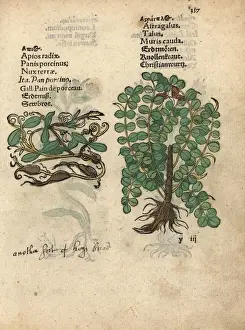 187
Apios radix.
Panis porcinus;
Nux terræ,
Ita. Pan porcino,
Gall. Pain de porceau.
Erdenuß,
Sewbrot.
Astragalus,
Talus,
Muris cauda,
Erdemören,
Knollenkraut,
Christianwurtz
another sort of hogs bread
y iij